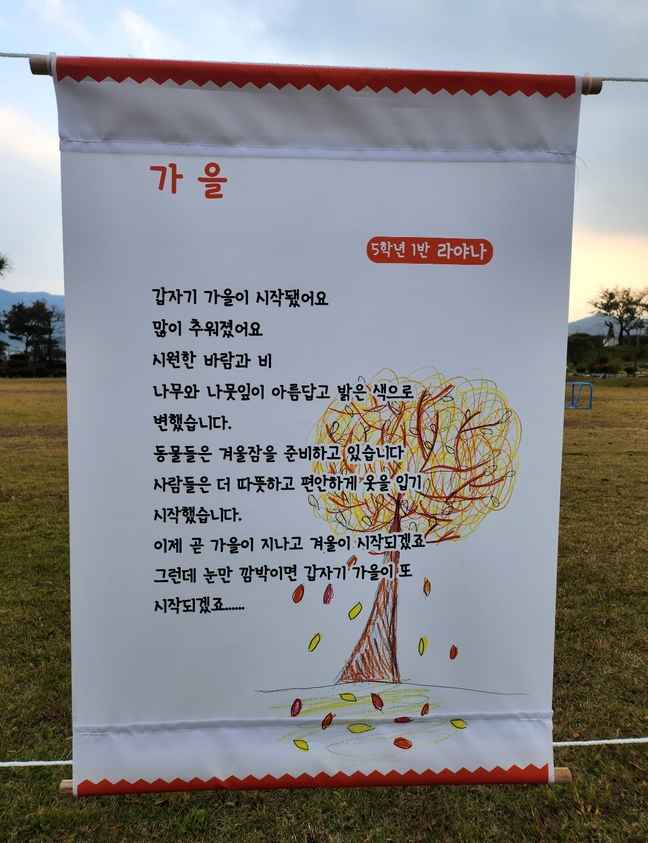 가 을
5학년 1반 라야나
갑자기 가을이 시작됐어요
많이 추워졌어요
시원한 바람과 비
나무와 나뭇잎이 아름답고 밝은 색으로
변했습니다.
동물들은 겨울잠을 준비하고 있습니다
사람들은 더 따뜻하고 편안하게 옷을 입기
시작했습니다.
이제 곧 가을이 지나고 겨울이 시작되겠죠
그런데 눈만 깜박이면 갑자기 가을이 또
시작되겠죠......